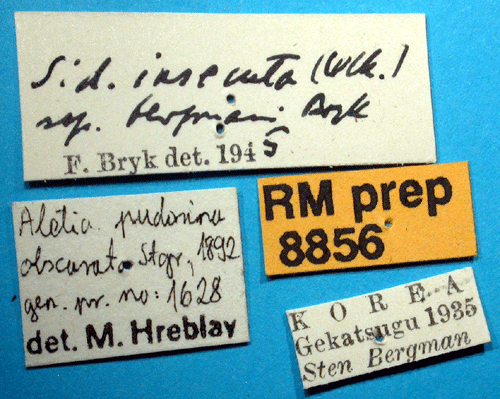 Sid. insecuta (Wlk.)
ssp. bergmani Bryk
F. Bryk det. 1945
RM prep
8856
Aletia pudorina
obscurata Stgr, 1892
gen. pr. no: 1628
det. M. Hreblay
KOREA
Gekatsugu 1935
Sten Bergman